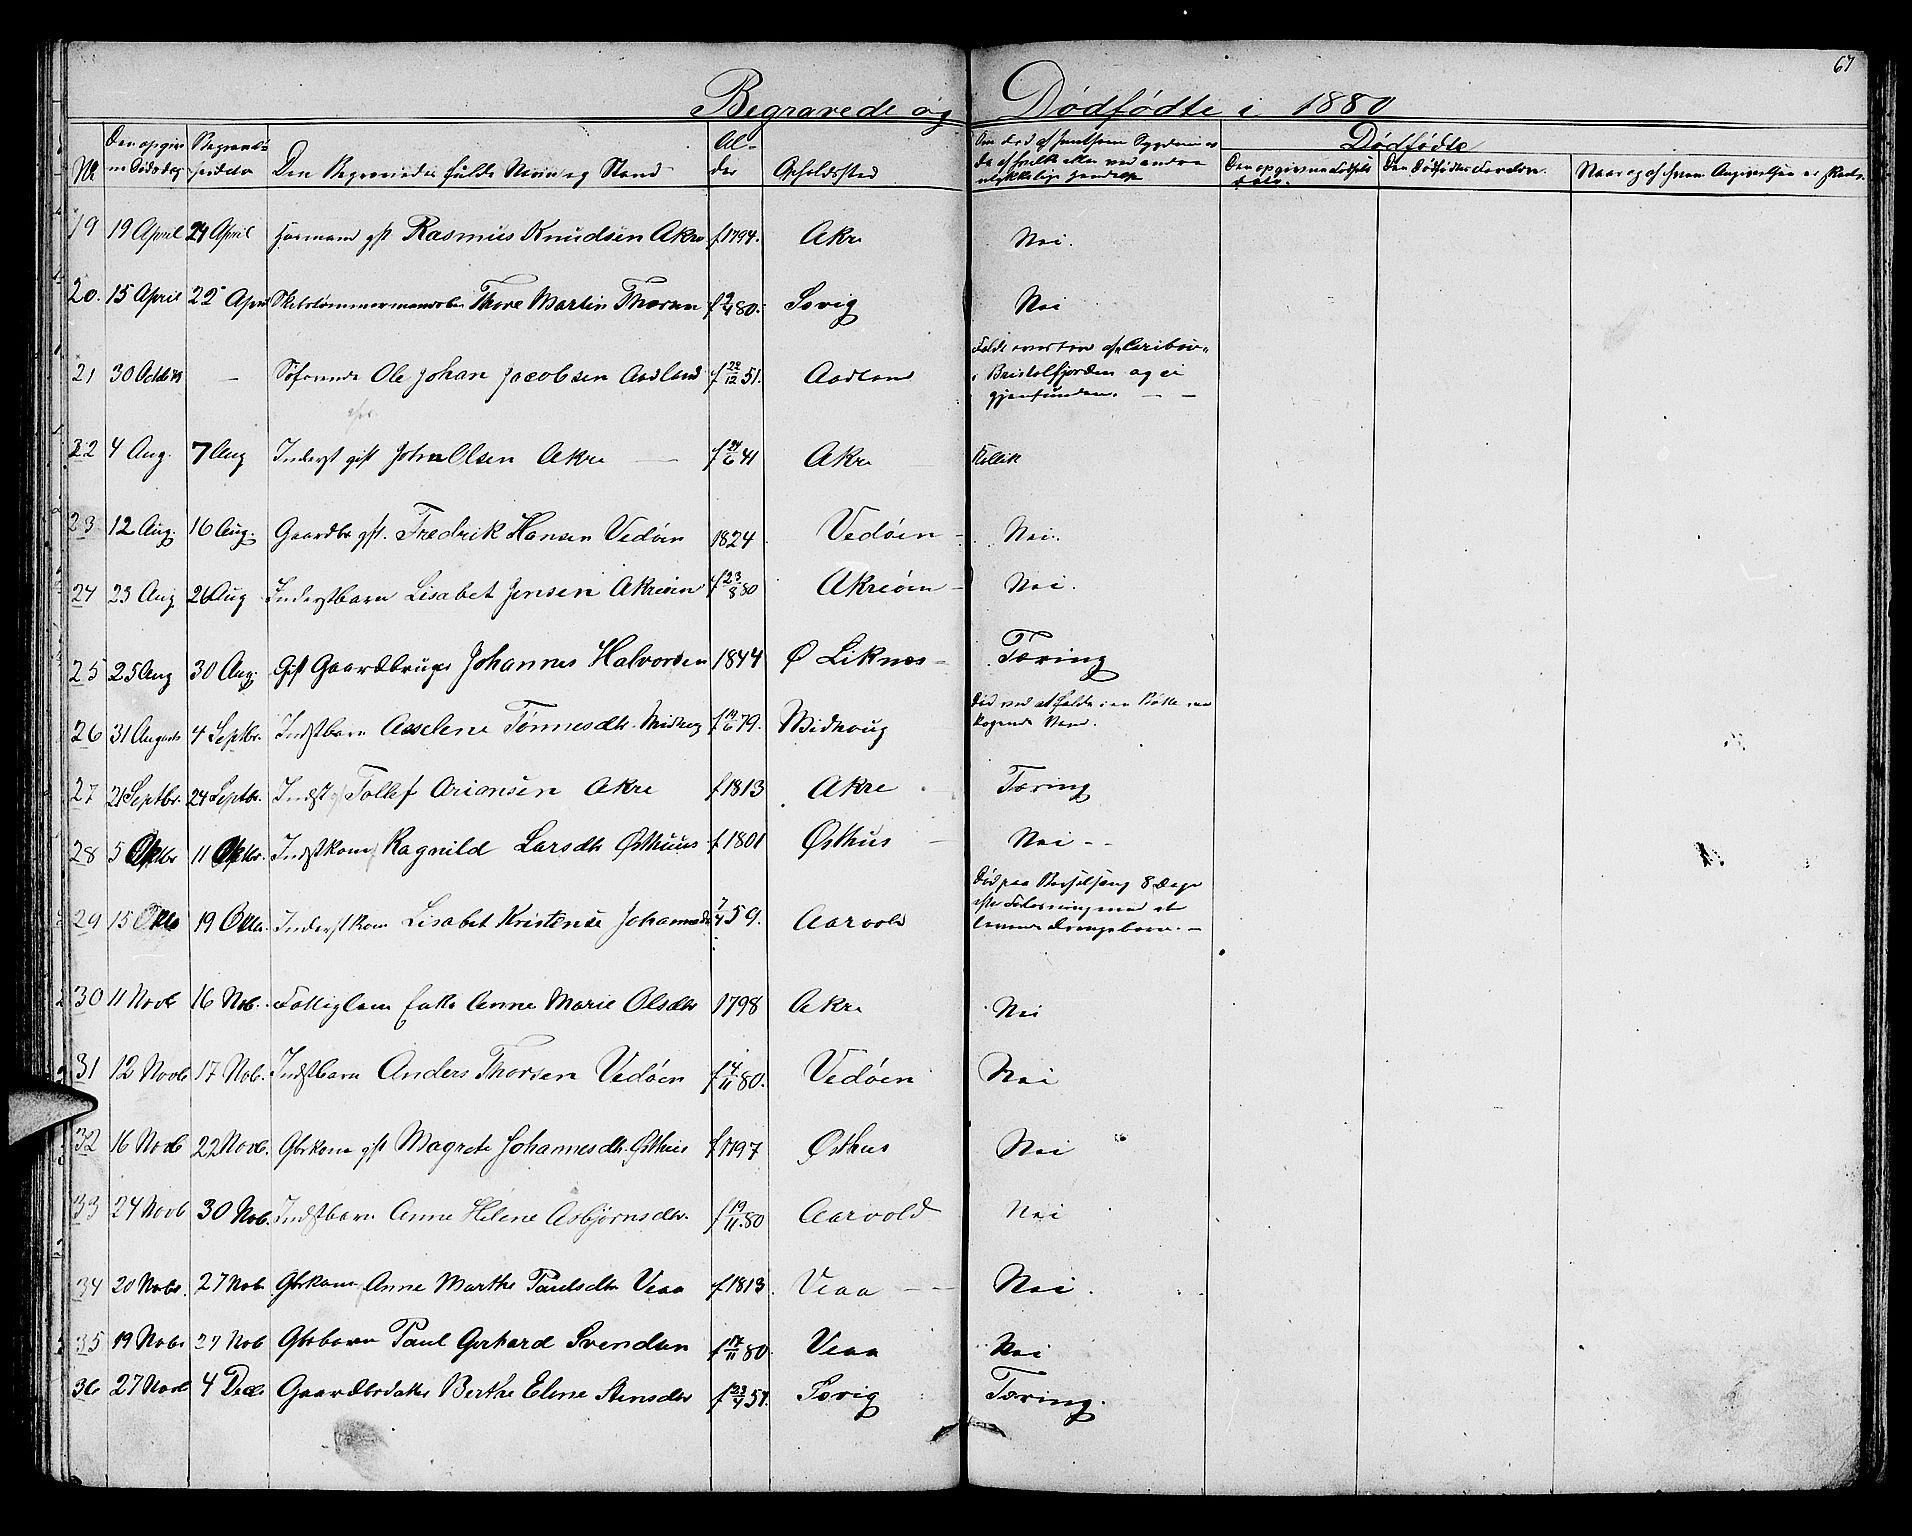 67
Begravede og Dødfødte i 1880
No Den opgivne Dødsdag Begravelsesdato Den Begravedes fulde Navn og Stand Alder Opholdsted Dødfødte
Den Dødfødtes Forældre. Naar og af hvem Angivelsen er skeet.
19 19 April 24 April gst Rasmus Knudsen Akre f 1794. Akre Nei.
20. 15 April 22 April Thore Martin f 9/4 80. Sevig Nei
21 30 Octbr 79 — Ole Johan Jacobsen Aadland f 22/12 51. Aadland Faldt overbord af
i Bristolfjorden og ei
gjenfunden. — —
22 4 Aug. 7 Aug Inderst gift John Olsen Akre — f 24/6 41 Akre Kolik
23 12 Aug. 16 Aug. Gaardbr gft. Fredrik Hansen Vedøen 1824 Vedøen — Nei.
24 23 Aug 26 Aug Inderstbarn Lisabet Jensen Akreøen f 23/8 80 Akreøen — Nei.
25 25 Aug 30 Aug. Gift Gaardbruger Johannes Halvorsen 1844 Ø Liknes — Tæring
26 31 August 4 Septbr. Indstbarn Asselene Tønnesdtr. Midhoug f 14/6 79. Midhoug Død ved at falde i en Bøtte med
kogende Vand.
27 21 Septbr. 24 Septbr. Indst Tollef Arionsen Akre f 1813 Akre Tæring
28 5 Oktbr 11 Oktbr. Indstkone Ragnild Larsdtr Østhuus f 1801 Østhus Nei - -
29 15 Oktb 19 Oktb. Inderstkone Lisabet Kristense Johannesdtr 7/4 59. Aarvold Død paa Barselseng 8 Dage
efter Forløsning med et
levende Drengebarn. —
30 11 Novb 16 Nob. Fattiglem Anne Marie Olsdtr 1798 Akre Nei
31 12 Novb 17 Nob. Indstbarn Anders Thorsen Vedøen f 4/11 80. Vedøen Nei
32 16 Novb 22 Novb. Gbrkone gft Magrete Johannesdtr. Østhus f 1797 Østhus Nei
33 24 Novb 30 Nob. Indstbarn Anne Helene Asbjørnsdtr. f 19/11 80 Aarvold Nei
34 20 Nobr. 27 Nob Gbrkone Anne Marthe Paulsdtr Veaa f 1813. Veaa — — Nei.
35 19 Nobr 27 Nob Gbrbarn Paul Gerhard Svendsen f 17/11 80 Veaa Nei
36 27 Novb 4 Decb. Gaardbrdatter Berthe Elene Stensdtr f 23/4 57. Sevig Tæring.